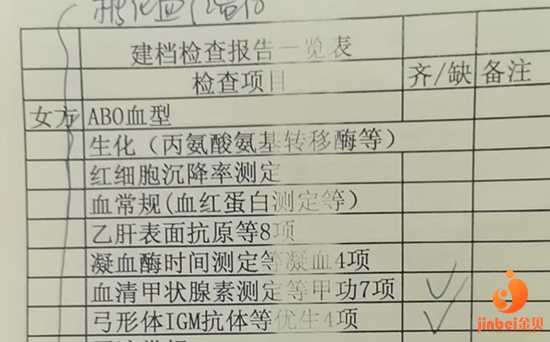 糖化血
建档检查报告一览表
检查项目 齐/缺 备注
女方 ABO血型
生化（丙氨酸氨基转移酶等）
红细胞沉降率测定
血常规(血红蛋白测定等)
乙肝表面抗原等8项
凝血酶时间测定等凝血4项
血清甲状腺素测定等甲功7项 ✓
弓形体IGM抗体等优生4项 ✓
jinbei金贝